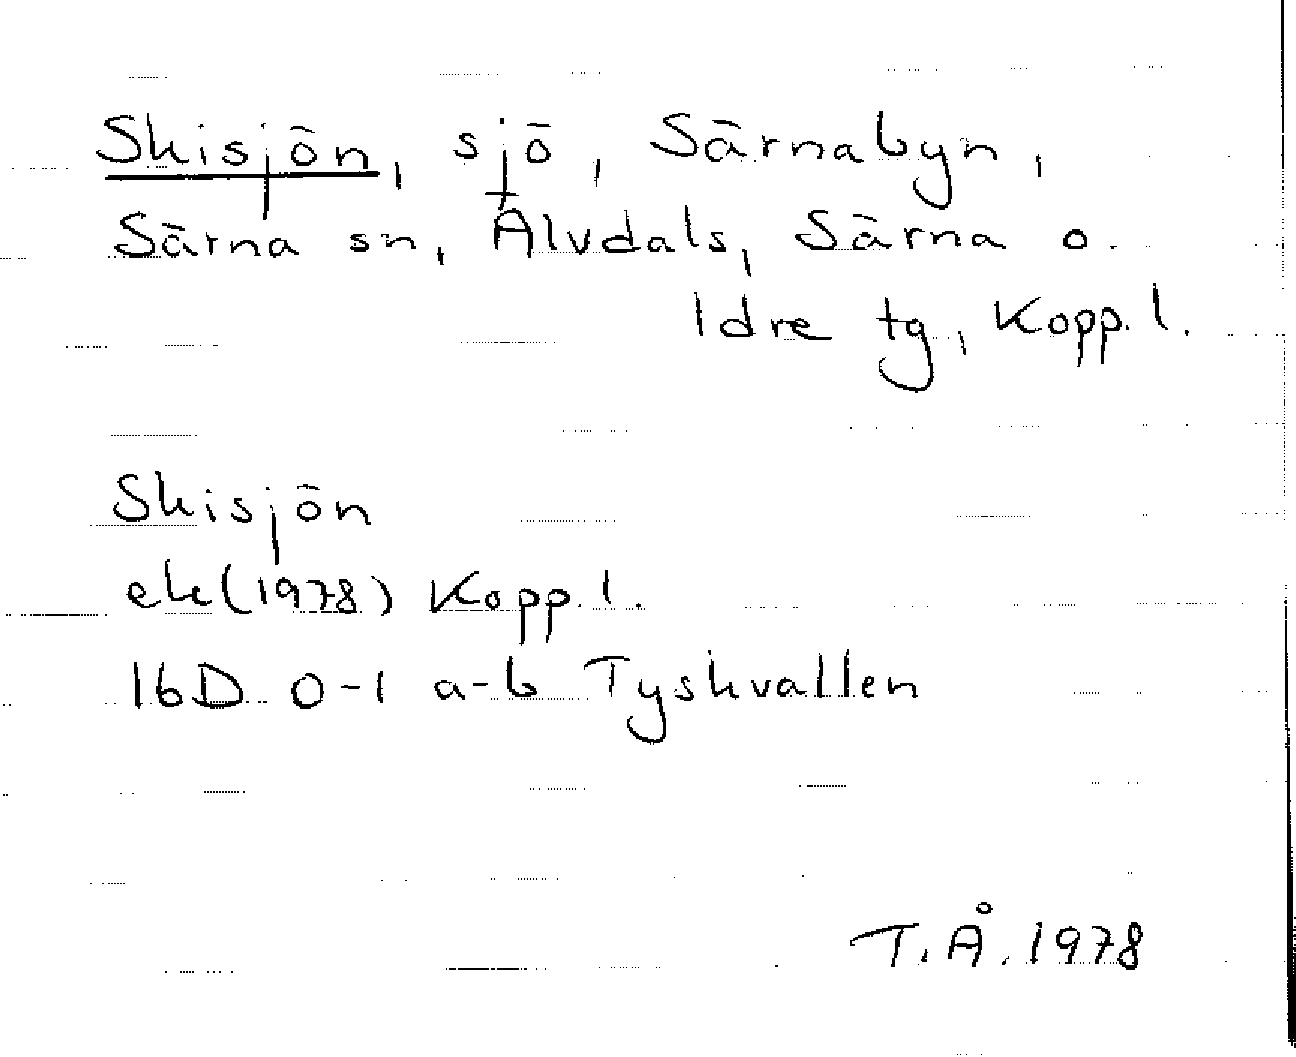 Skisjön, sjö, Särnabyn,
Särna sn, Älvdals, Särna o.
Idre tg, Kopp. l.
Skisjön
ek(1978) Kopp. l.
16D 0-1 a-b Tyskvallen
T.Å. 1978